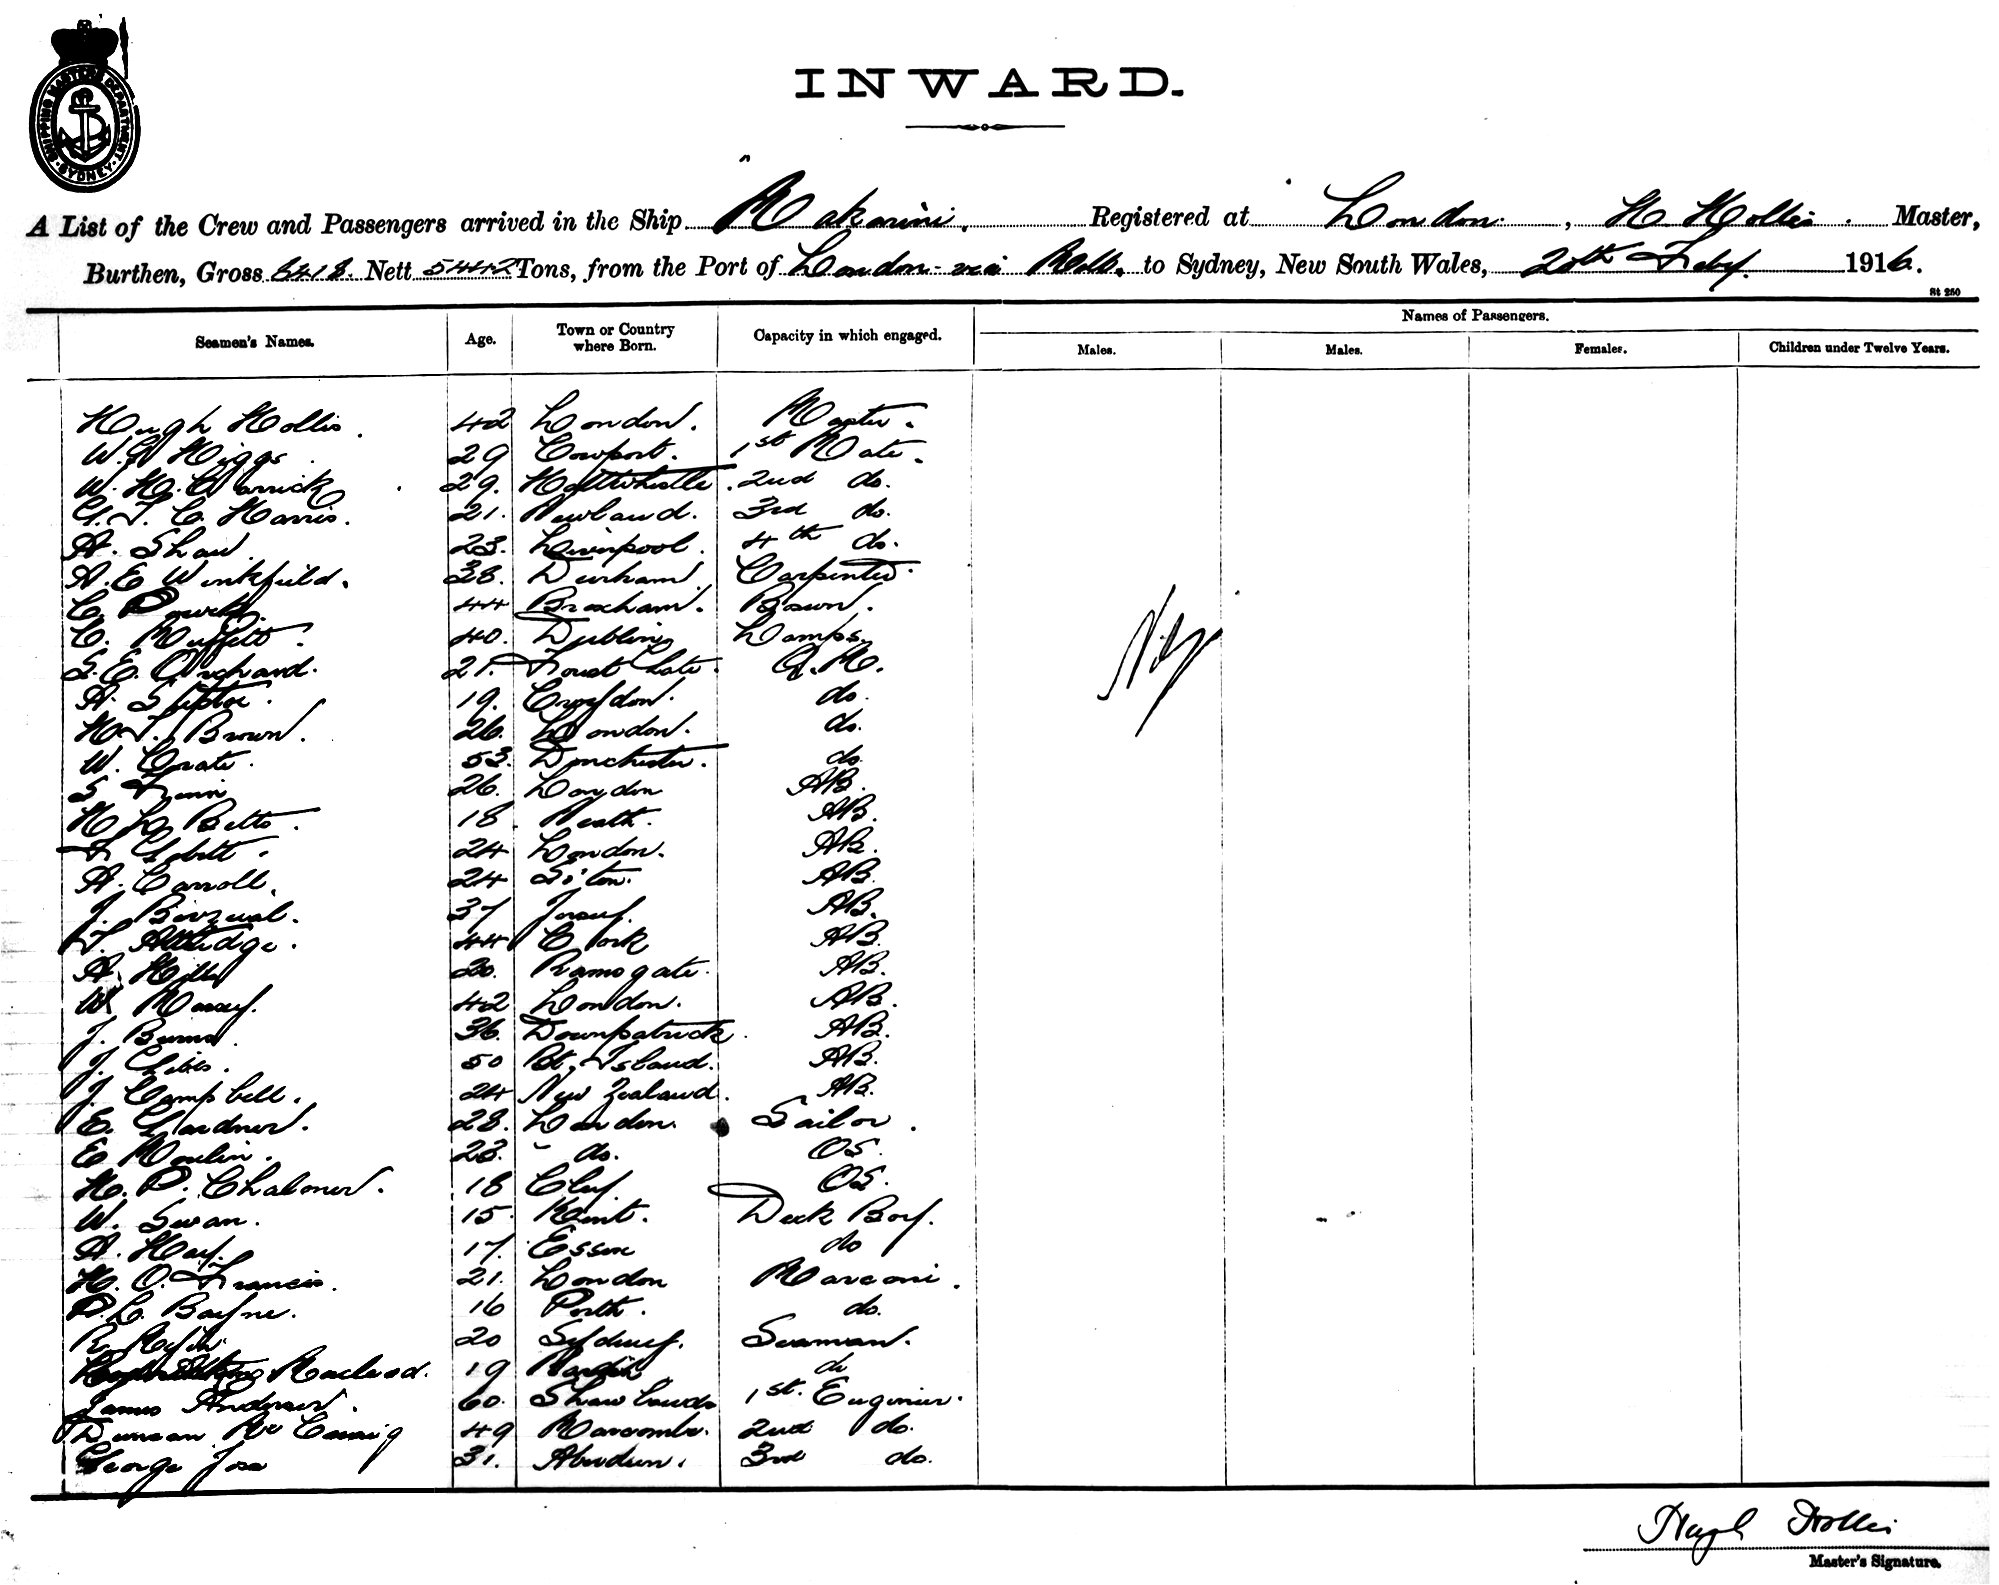 SHIPPING MASTERS DEPARTMENT
SYDNEY
INWARD.
A List of the Crew and Passengers arrived in the Ship Makarini. Registered at London, H Hollis. Master,
Burthen, Gross 8418. Nett 5442 Tons, from the Port of London via Melb. to Sydney, New South Wales, 20th Feby. 1916.
St 250
Seamen's Names. Age. Town or Country where Born. Capacity in which engaged. Names of Passengers.
Males. Males. Females. Children under Twelve Years.
Hugh Hollis. 42 London. Master.
Higgs 29 Cowport. 1st Mate.
W. H. Carrick 29. Haltwhistle. 2nd do.
G. T. C. Harris. 21. Newland. 3rd do.
A. Shaw. 23. Liverpool. 4th do.
A. E Winkfield. 38. Durham. Carpenter.
C. 44 Brixham. Bosun.
C. Muffett. 40. Dublin Lamps.
S. E. Orchard. 21. Forest Gate. Q.M.
A. 19. Croydon. do.
Brown. 26. London. do.
W. 53. Dorchester. do.
S 26. London AB.
H Betts. 18. Neath. AB.
24 London. AB.
A. Carroll. 24 AB.
J. 37 Jersey. AB.
44 Cork AB.
A. Hills 20. Ramsgate. AB.
W Massey. 42 London. AB.
J. Burns. 36. Downpatrick. AB.
J. 50 Island. AB.
J. Campbell. 24 New Zealand. AB.
E. Gardner. 28. London. Sailor.
E Moulin. 23. - do. OS.
H. P. Chaloner. 18 Clay. OS.
W. Swan. 15. Kent. Deck Boy.
A. Hay. 17. Essex do
H. O. Francis. 21. London Marconi.
P. C. Bayne. 16 Perth. do.
R. 20 Sydney. Seaman.
Macleod. 19 do
James Anderson. 60. Shawlands 1st. Engineer.
Duncan McCaig 49 2nd do.
George 31. Aberdeen. 3rd do.
Nil
Hugh Hollis
Master's Signature.